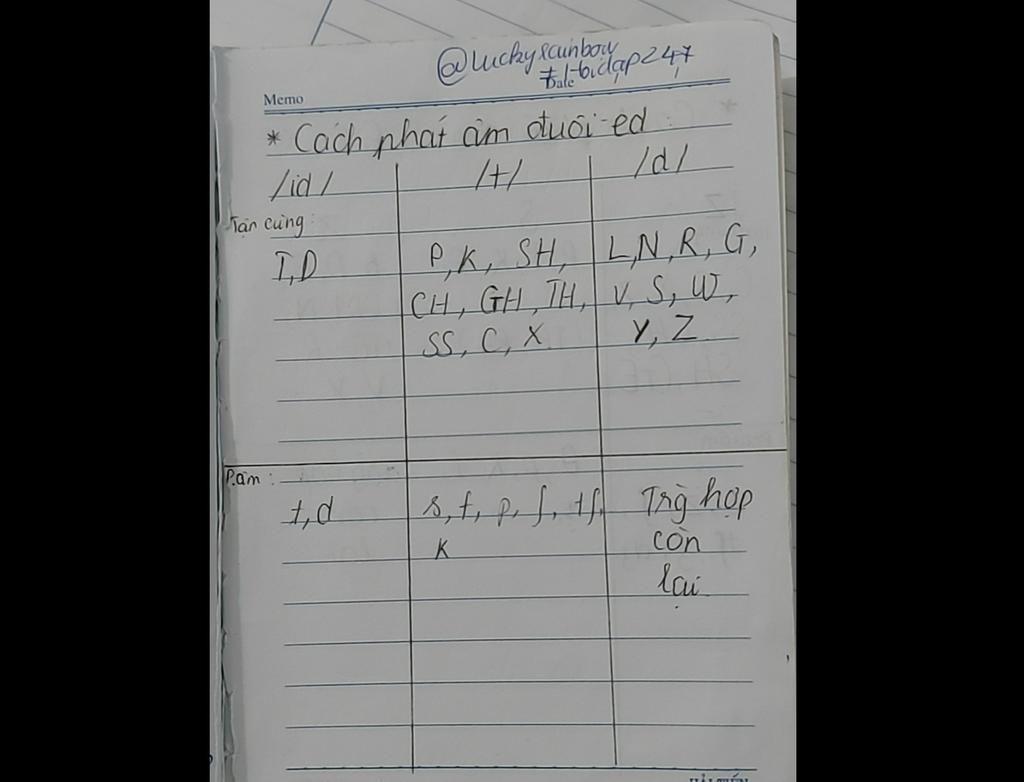 @luckyrainbow
#bidap247
Memo
Date
* Cách phát âm đuôi-ed:
/id/ /t/ /d/
Tận cùng:
T,D P,K, SH, L,N,R,G,
CH, GH, TH, V, S, W,
SS, C, X Y, Z
P.âm:
t,d s,f, p, ʃ, tʃ, Trg hợp
k còn
lại
HẢI TIẾN